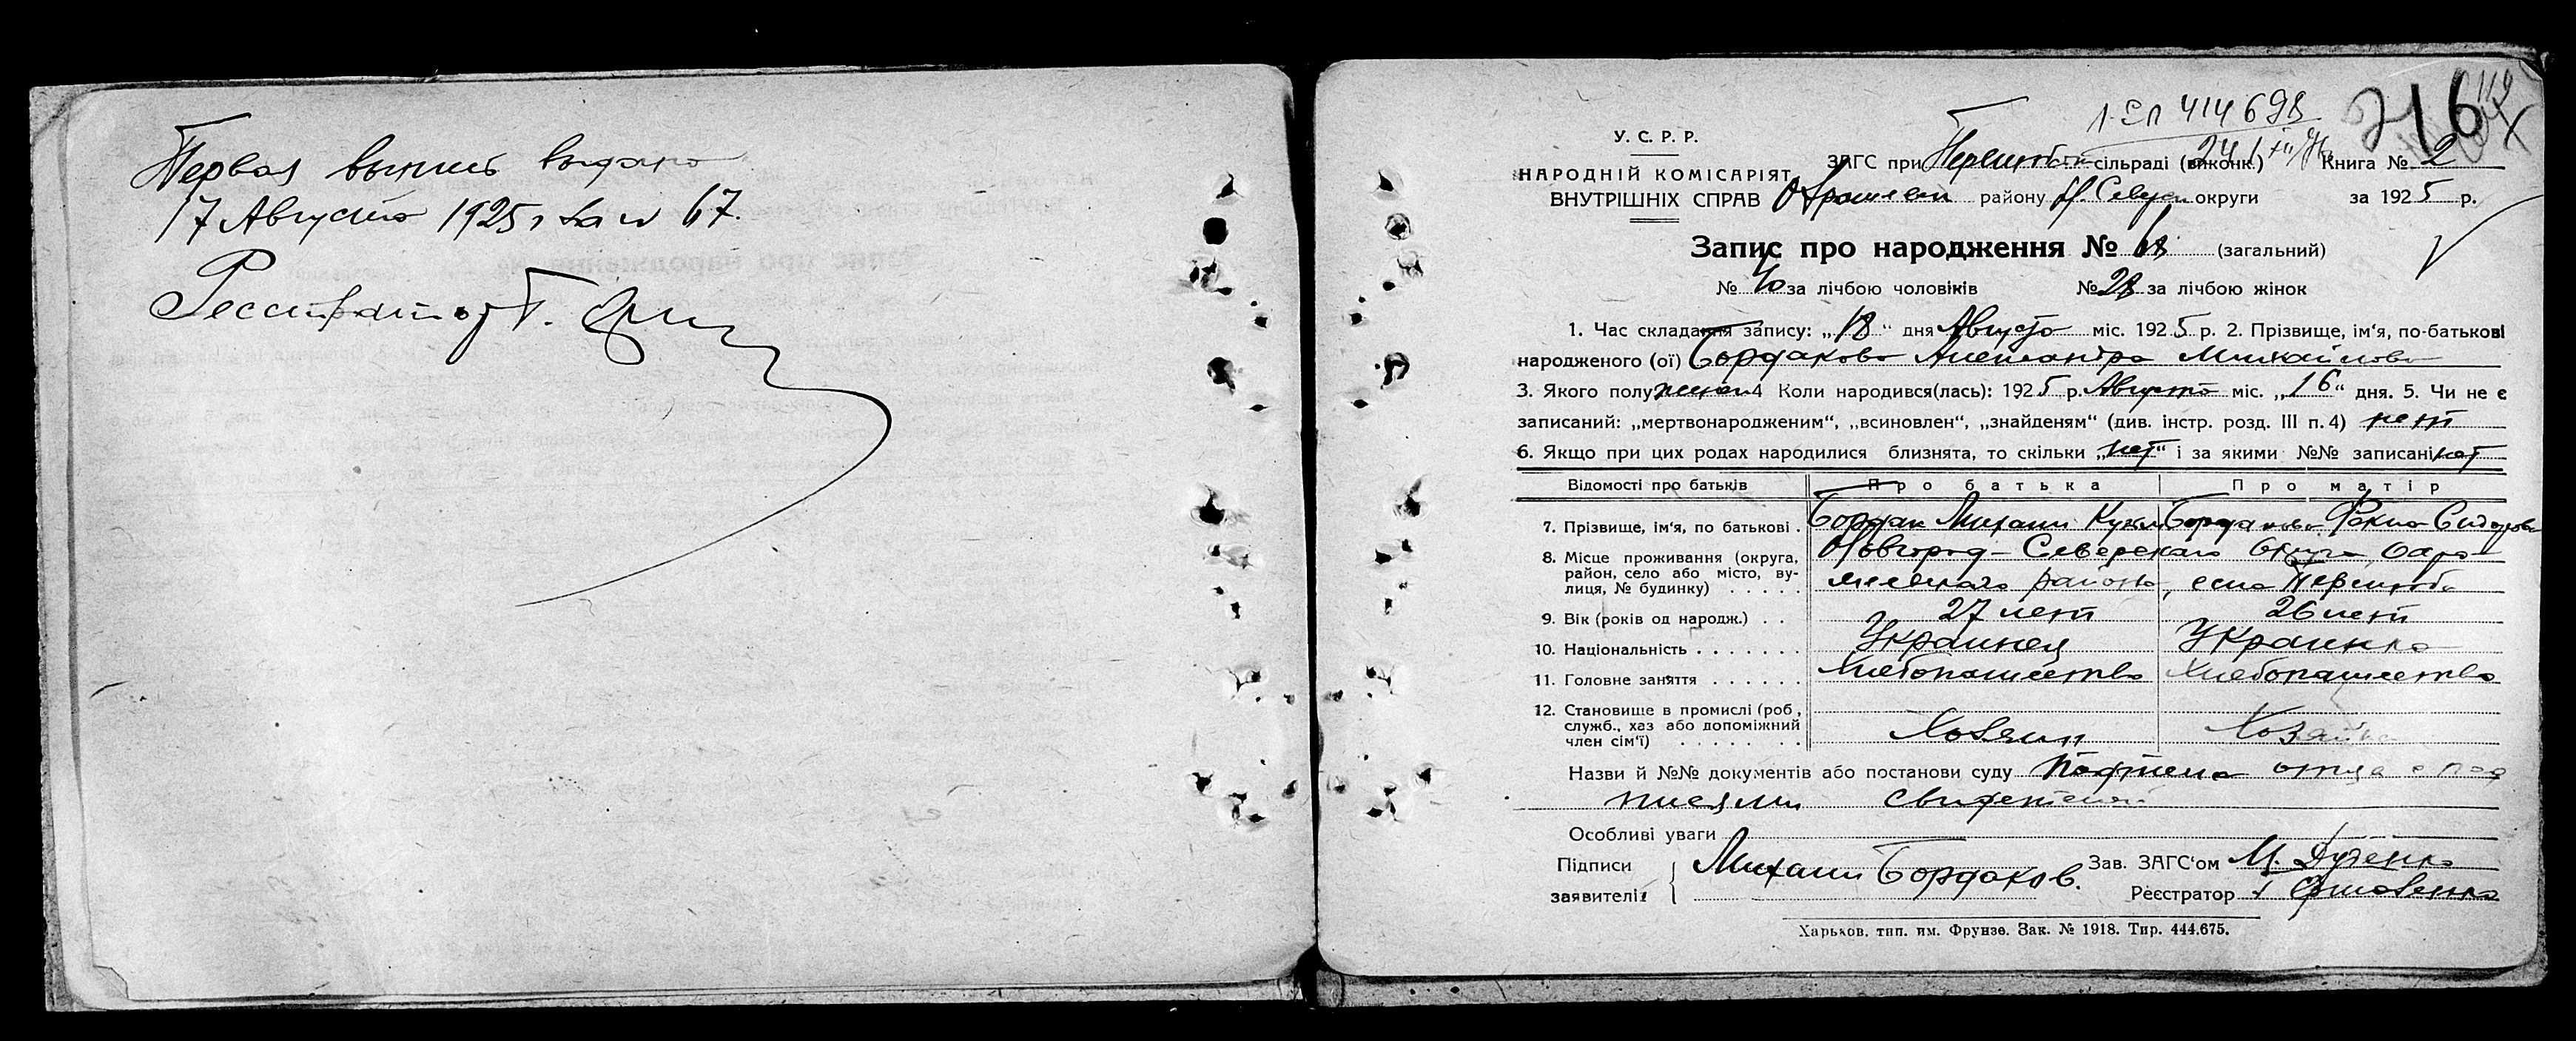 Первая выпись выдана
17 Августа 1925 г за № 67.
Регистратор Г.
216
1-ЕЛ 414698
У. С. Р. Р.
НАРОДНІЙ КОМІСАРІЯТ
ВНУТРІШНІХ СПРАВ
ЗАГС при сільраді (виконк.) Книга № 2
району Н. Север округи за 1925 р.
Запис про народження № 68 (загальний)
№ 40 за лічбою чоловіків № 28 за лічбою жінок
1. Час складання запису: „18“ дня Августа міс. 1925 р. 2. Прізвище, ім'я, по-батькові
народженого (ої) Бордакова Александра Михайловна
3. Якого полу женск 4 Коли народився(лась): 1925 р. Августа міс. „16“ дня. 5. Чи не є
записаний: „мертвонародженим“, „всиновлен“, „знайденям“ (див. інстр. розд. III п. 4) нет
6. Якщо при цих родах народилися близнята, то скільки „нет“ і за якими №№ записані нет
Відомості про батьків Про батька Про матір
7. Прізвище, ім'я, по батькові . Бордак Михаил Бордакова Сидоровн
8. Місце проживання (округа, Новгород-Северскаго Округа
район, село або місто, ву-
лиця, № будинку) . . . . . района, село
9. Вік (років од народж.) . . 27 лет 26 лет
10. Національність . . . . . . . Украинец Украинка
11. Головне заняття . . . . . . Хлебопашество Хлебопашество
12. Становище в промислі (роб.,
служб., хаз або допоміжний
член сім'ї) . . . . . . . Хозяин Хозяйка
Назви й №№ документів або постанови суду отца с под
писями свидетелей
Особливі уваги
Підписи
заявителів Михаил Бордаков.
Зав. ЗАГС'ом
Реєстратор
Харьков, тип. им. Фрунзе. Зак. № 1918. Тир. 444.675.